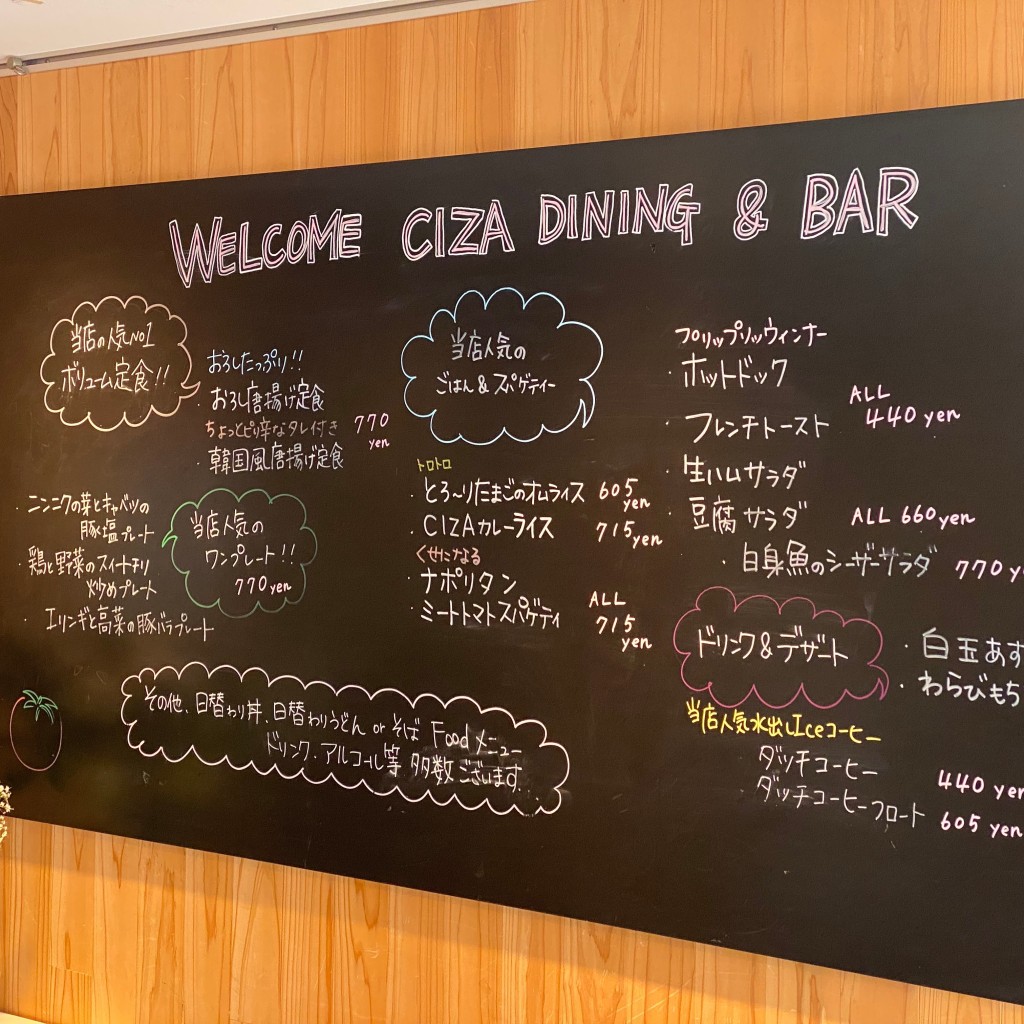 WELCOME CIZA DINING & BAR
当店の人気No1
ボリューム定食!!
おろしたっぷり!!
・おろし唐揚げ定食
ちょっとピリ辛なタレ付き
・韓国風唐揚げ定食
770
yen
・ニンニクの芽とキャベツの
豚塩プレート
・鶏と野菜のスイートチリ
炒めプレート
・エリンギと高菜の豚バラプレート
当店人気の
ワンプレート!!
770yen
当店人気の
ごはん&スパゲティー
トロトロ
・とろ〜りたまごのオムライス 605
yen
・CIZAカレーライス 715yen
くせになる
・ナポリタン
・ミートトマトスパゲティ
ALL
715
yen
プリップリッウィンナー
・ホットドック
・フレンチトースト
ALL
440 yen
・生ハムサラダ
・豆腐サラダ ALL 660yen
・白身魚のシーザーサラダ 770 y
ドリンク&デザート
・白玉あず
・わらびもち
当店人気水出しIceコーヒー
ダッチコーヒー 440 yen
ダッチコーヒーフロート 605 yen
その他、日替わり丼、日替わりうどん or そば Foodメニュー
ドリンク・アルコール等 多数ございます。